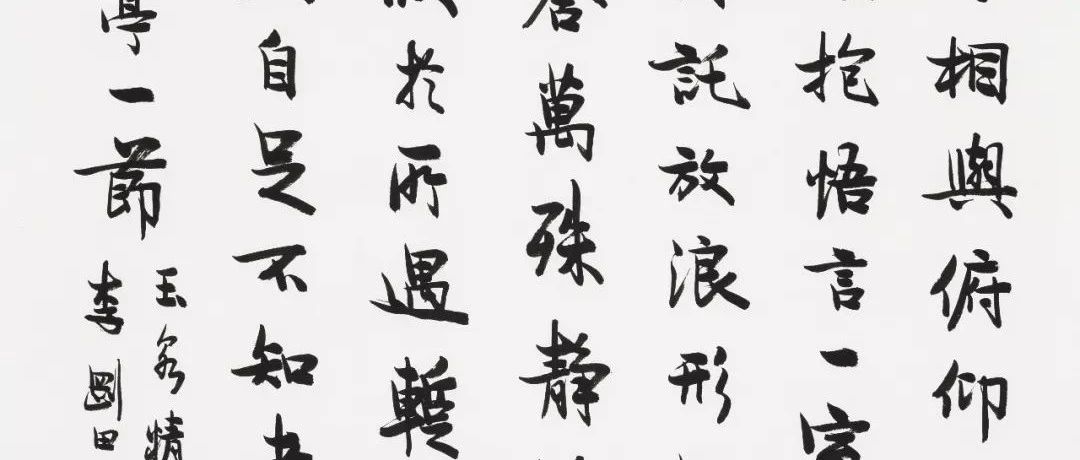 相與俯仰
抱悟言一室
託放浪形
舍萬殊静
於所遇暫
自足不知老
亭一節
玉 精
李剛田